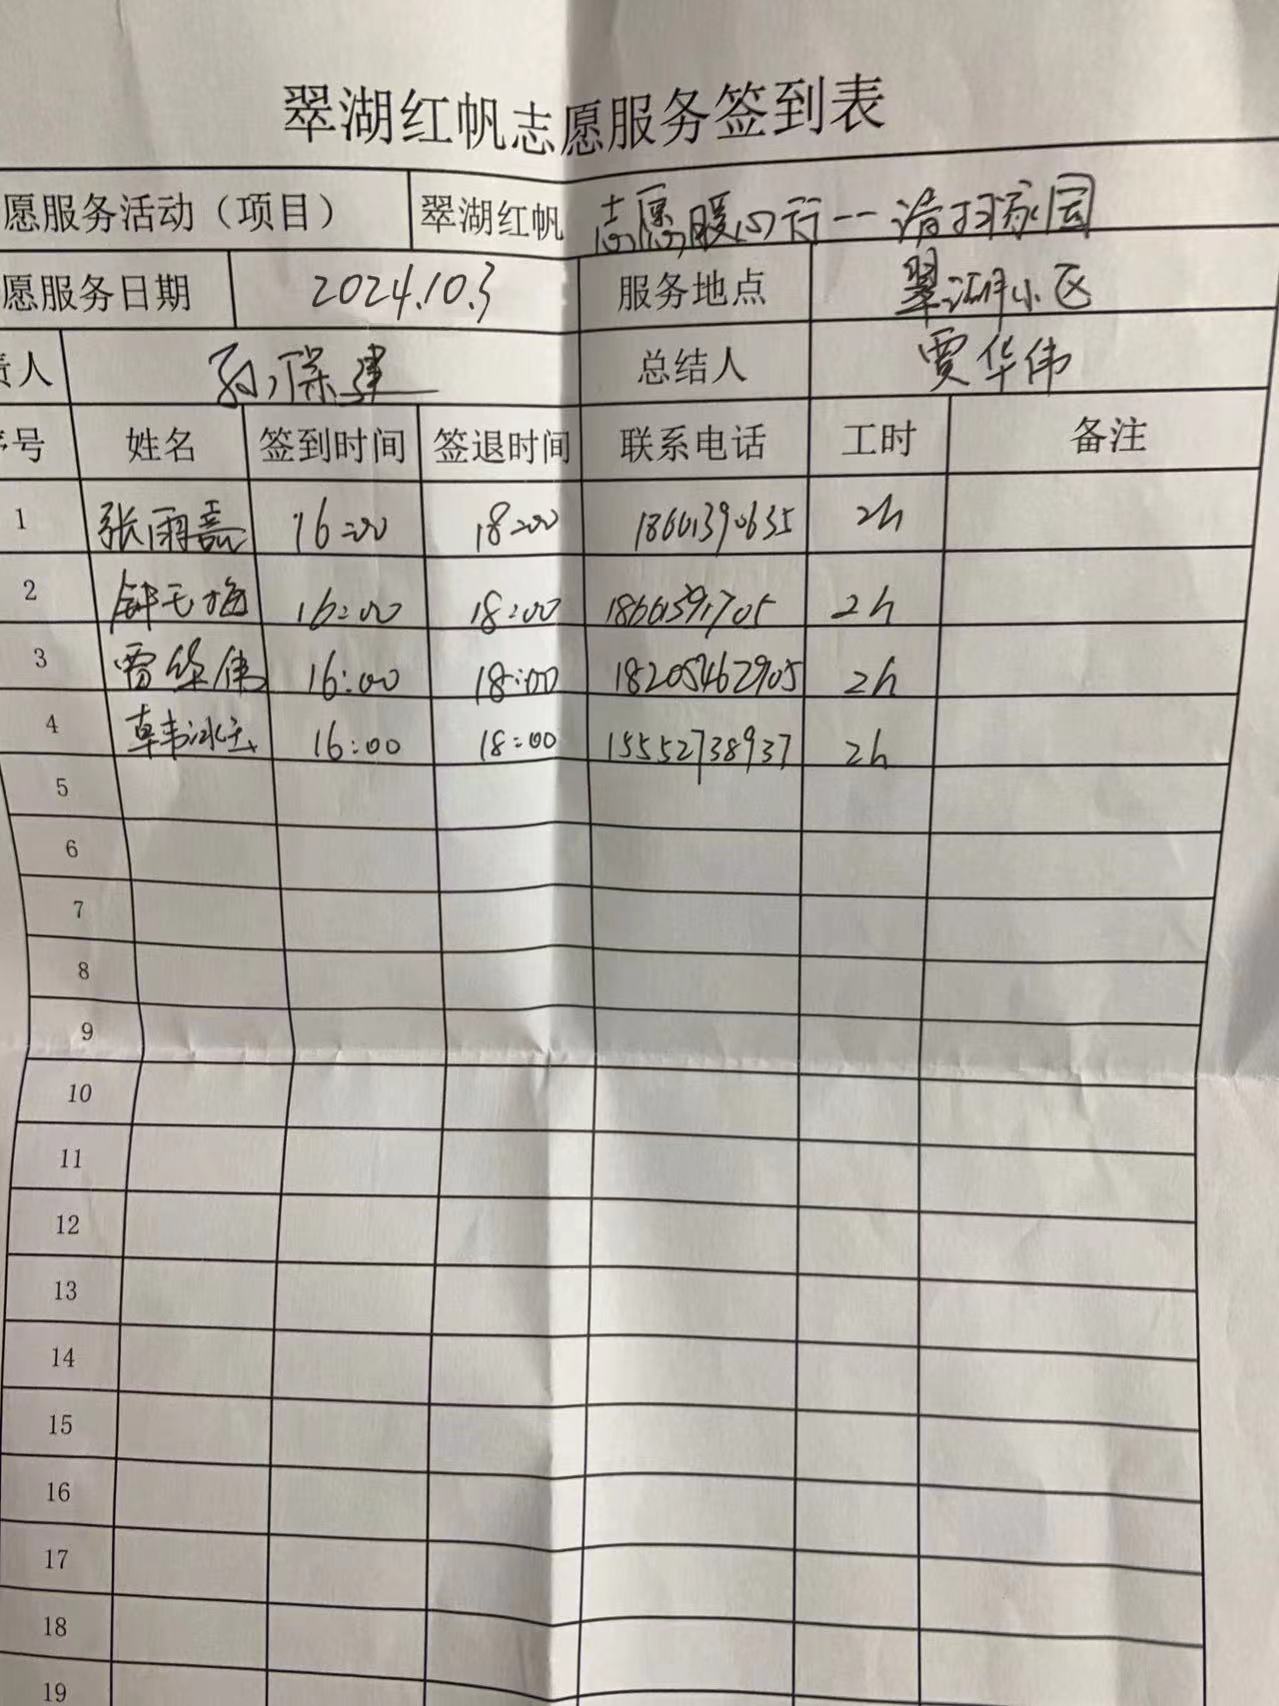 翠湖红帆志愿服务签到表
愿服务活动（项目） 翠湖红帆 志愿暖心行--清扫家园
愿服务日期 2024.10.3 服务地点 翠湖小区
责人 孙保建 总结人 贾华伟
序号 姓名 签到时间 签退时间 联系电话 工时 备注
1 张雨嘉 16:00 18:00 18661390635 2h
2 16:00 18:00 18661391705 2h
3 贾华伟 16:00 18:00 18205462905 2h
4 16:00 18:00 15552738937 2h
5
6
7
8
9
10
11
12
13
14
15
16
17
18
19